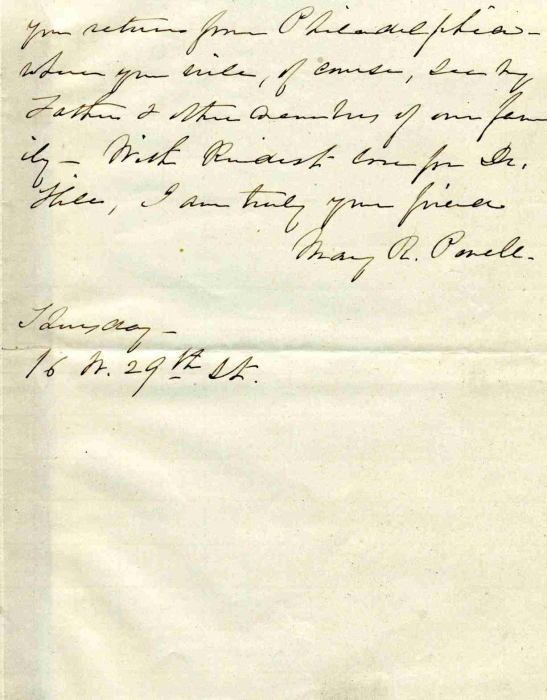 your return from Philadelphia -
when you will, of course, see my
Father & other members of our fam
ily - With kindest love for Dr.
I am truly your friend
Mary R. Powell -
Thursday -
16 W. 29th St.